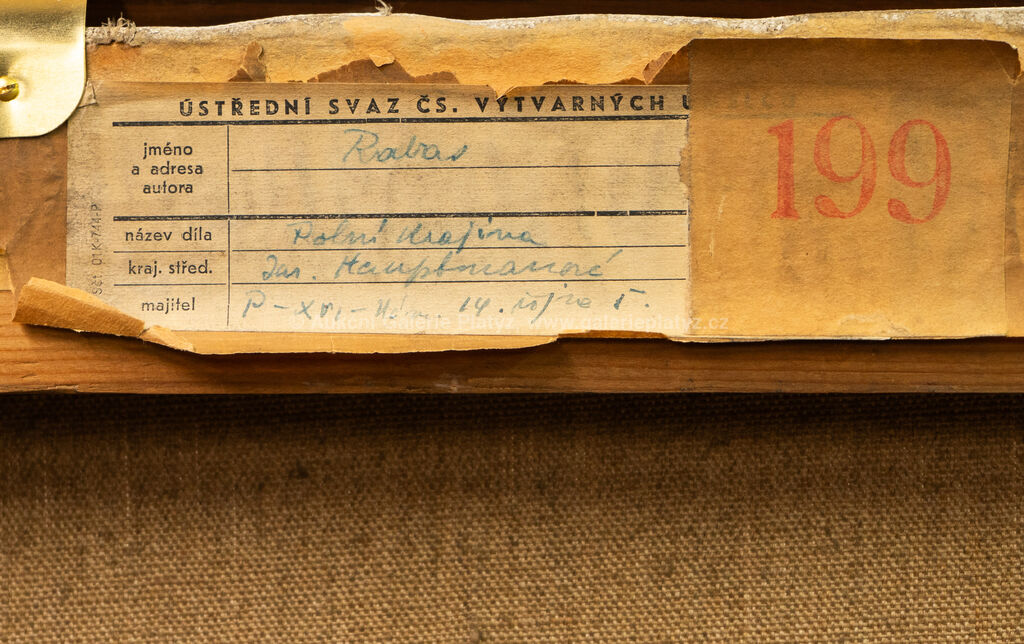 ÚSTŘEDNÍ SVAZ ČS. VÝTVARNÝCH U
199
jméno
a adresa
autora
Rabas
název díla
Polní krajina
kraj. střed.
Jar. Hauptmanové
majitel
P-XVI- 14. října 5.
Sčt. 01 K-744-P
www.galerieplatyz.cz